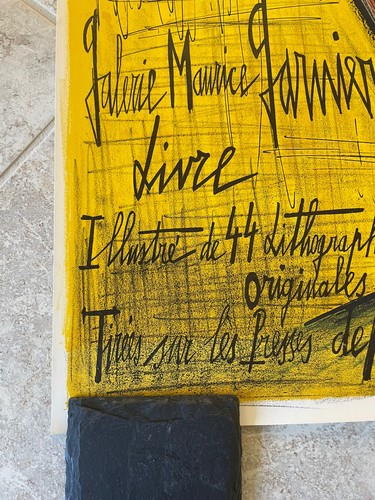 Galerie Maurice Garnier
Livre
Illustré de 44 Lithograph
Originales
Tirées sur les Presses de